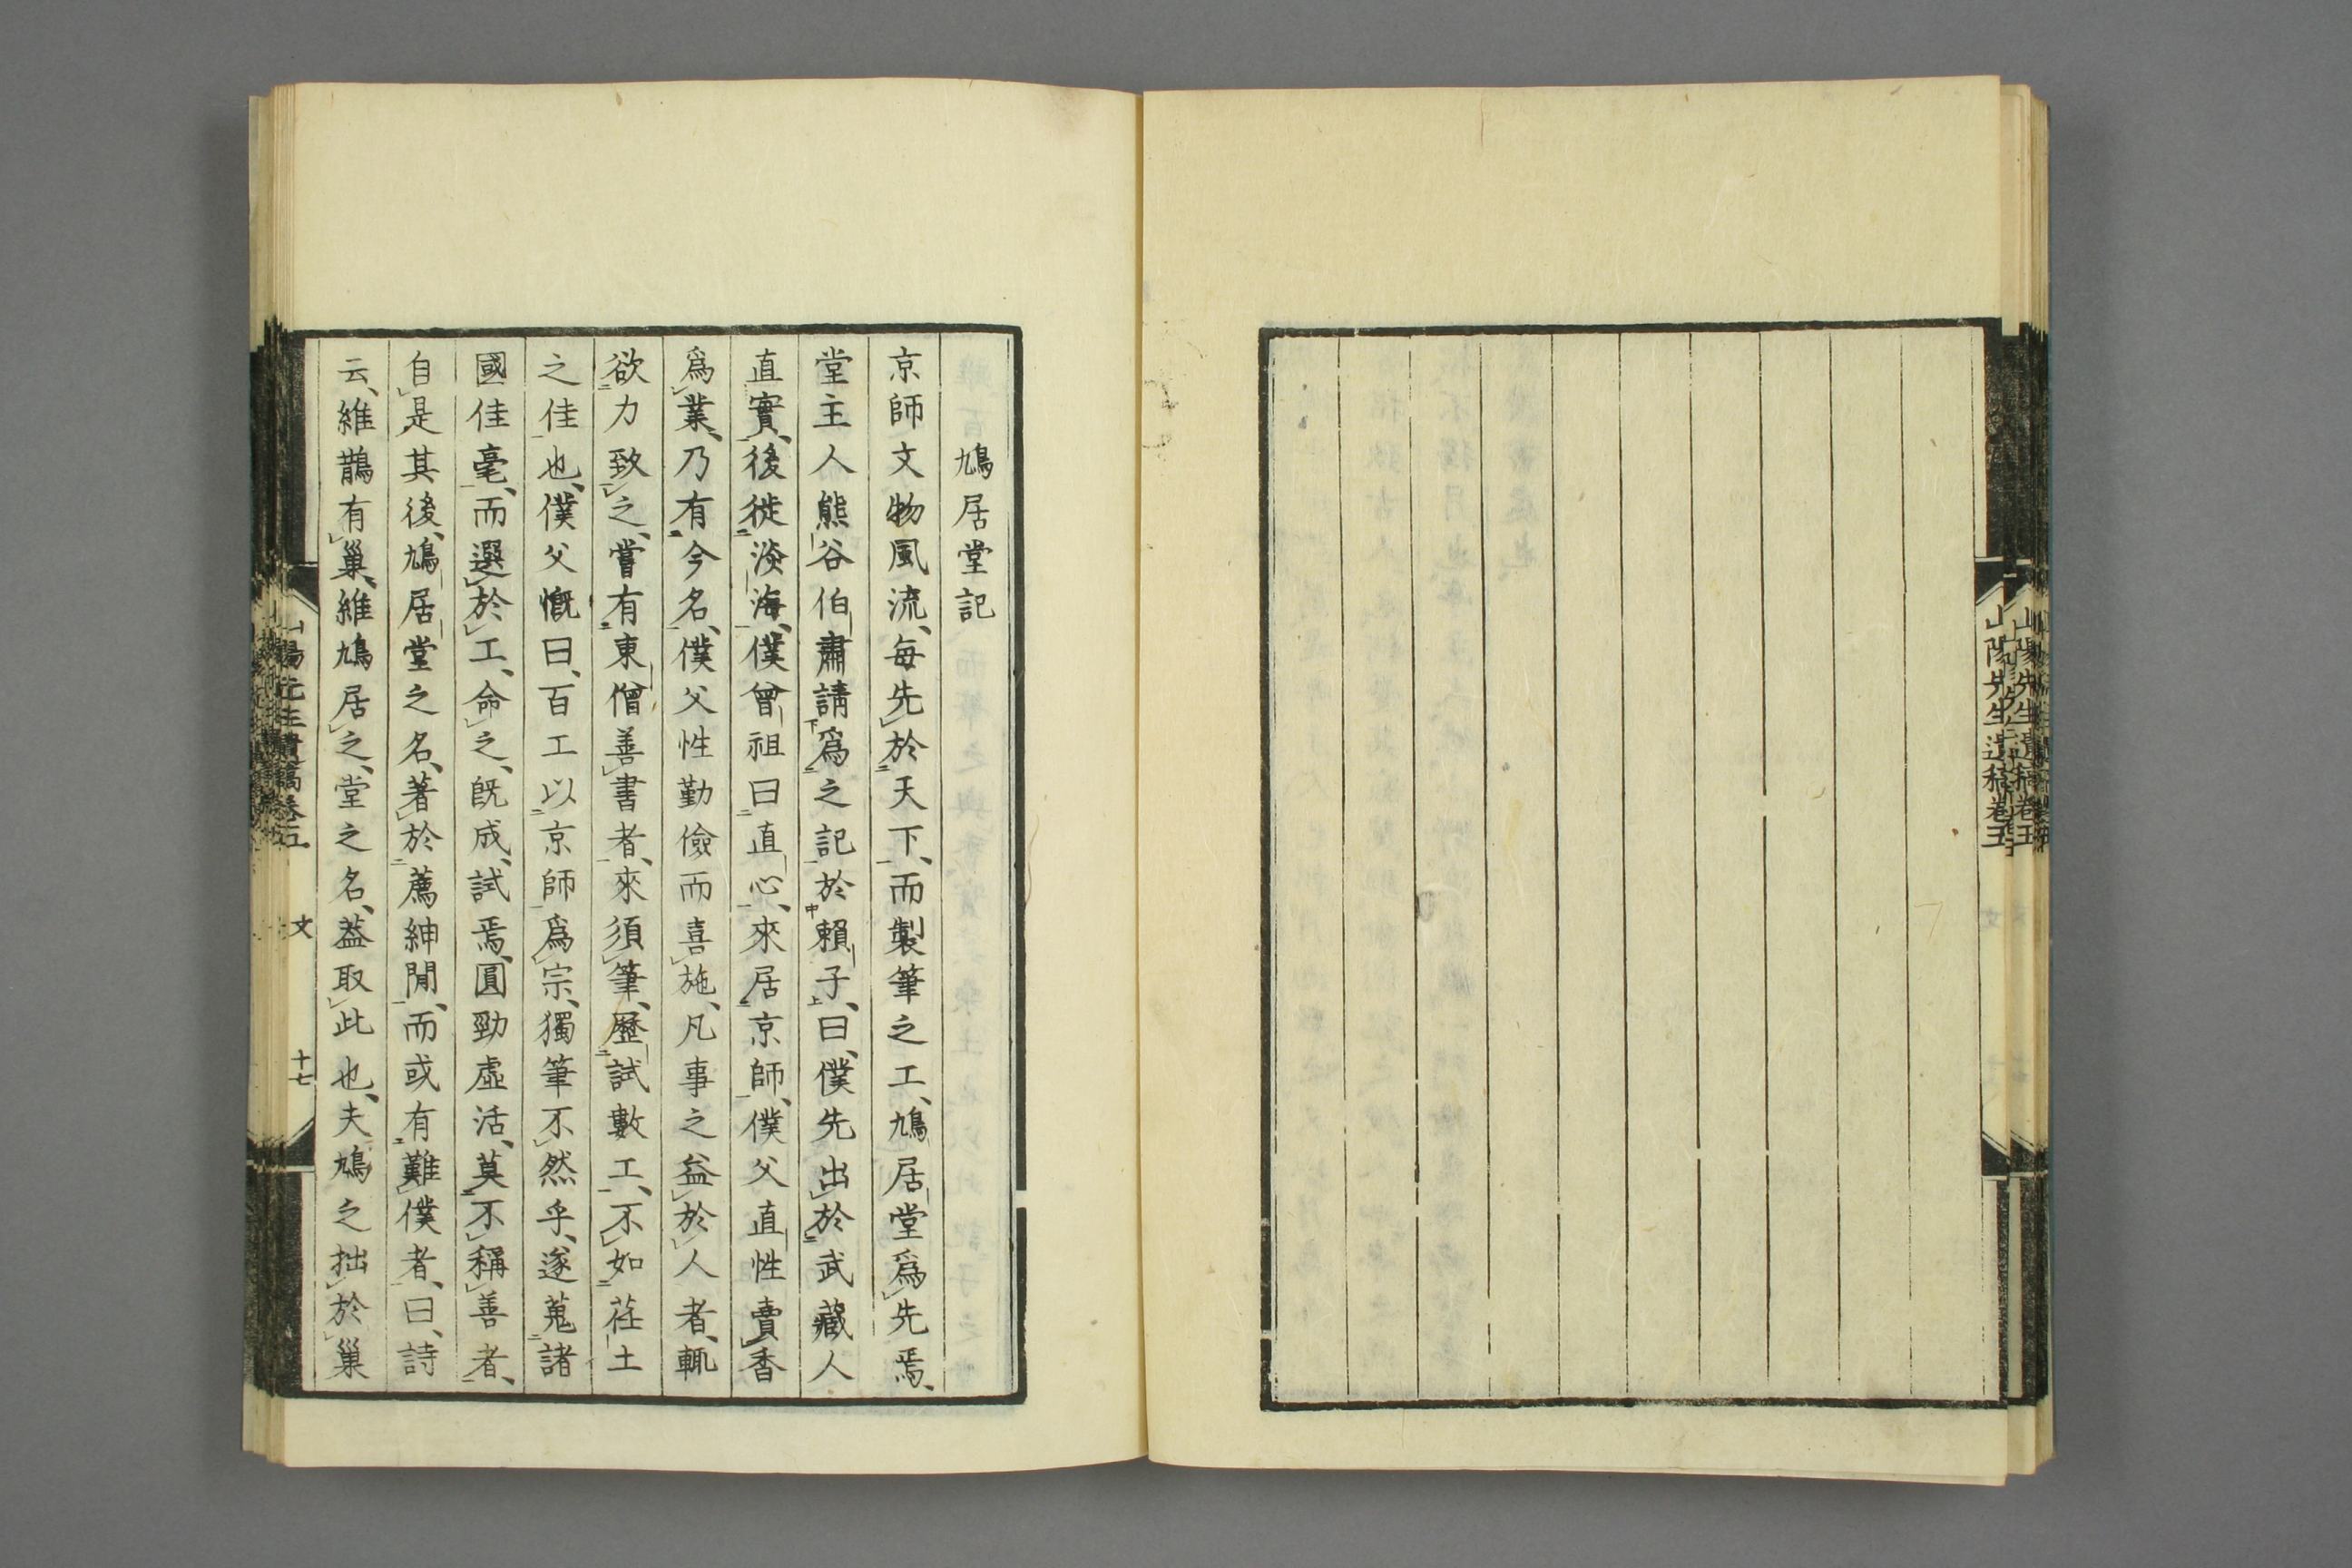 山陽先生遺稿卷五
鳩居堂記
京師文物風流、每先於天下、而製筆之工、鳩居堂爲先焉、
堂主人熊谷伯肅請爲之記於賴子、曰、僕先出於武藏人
直實、後徙湊海、僕曾祖曰直心、來居京師、僕父直性賣香
爲業、乃有今名、僕父性勤儉而喜施、凡事之益於人者、輒
欲力致之、嘗有東僧善書者、來須筆、歷試數工、不如茌土
之佳也、僕父慨曰、百工以京師爲宗、獨筆不然乎、遂蒐諸
國佳毫、而選於工、命之、旣成、試焉、圓勁虛活、莫不稱善者、
自是其後、鳩居堂之名、著於薦紳閒、而或有難僕者、曰、詩
云、維鵲有巢、維鳩居之、堂之名、蓋取此也、夫鳩之拙於巢
山陽先生遺稿卷五
文
十七